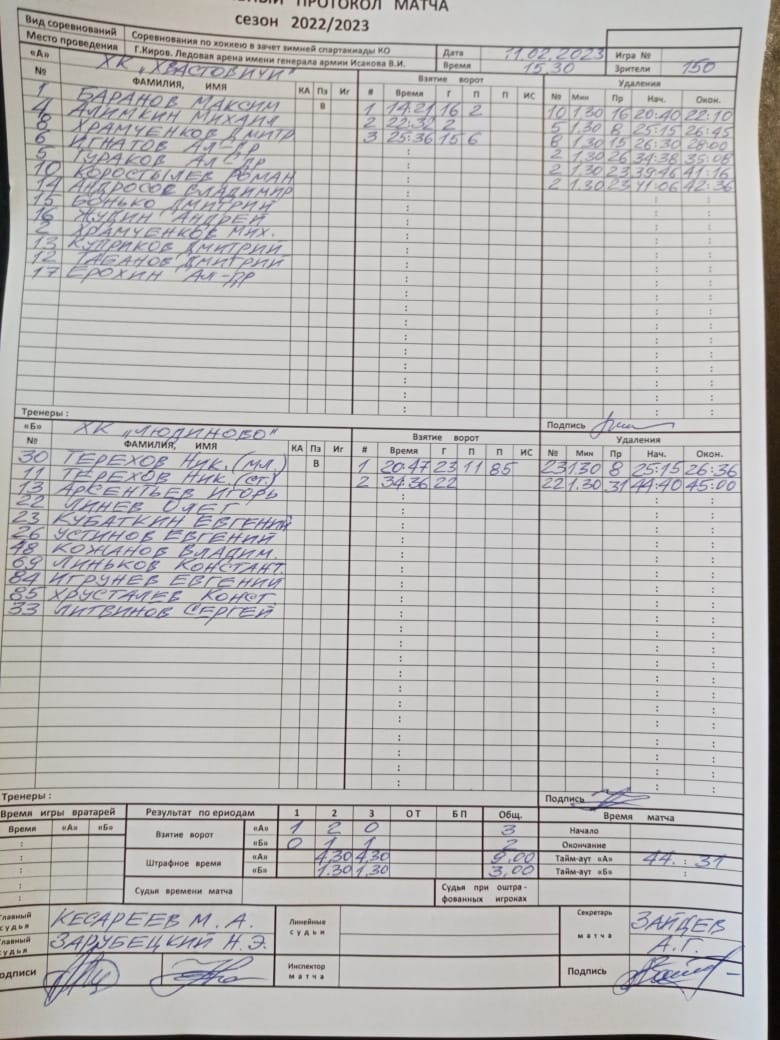 ПРОТОКОЛ МАТЧА
сезон 2022/2023
Вид соревнований Соревнования по хоккею в зачет зимней спартакиады КО Дата 11.02.2023 Игра №
Место проведения Г.Киров. Ледовая арена имени генерала армии Исакова В.И. Время 15.30 Зрители 150
«А» ХК „ХВАСТОВИЧИ" Взятие ворот Удаления
№ ФАМИЛИЯ, ИМЯ КА Пз Иг # Время Г П П ИС № Мин Пр Нач. Окон.
1 БАРАНОВ МАКСИМ В 1 14:21 16 2 10 1.30 16 20:40 22:10
4 АЛИМКИН МИХАИЛ 2 22:32 2 5 1.30 8 25:15 26:45
8 ХРАМЧЕНКОВ ДМИТР 3 25:36 15 6 8 1.30 15 26:30 28:00
6 ИГНАТОВ АЛ-ДР 2 1.30 26 34:38 35:08
5 ТУРАКОВ АЛ-ДР 2 1.30 23 39:46 41:16
10 КОРОСТЫЛЕВ РОМАН 2 1.30 23 41:06 42:36
14 АНДРОСОВ ВЛАДИМИР
15 БОНЬКО ДМИТРИЙ
16 ЖУДИН АНДРЕЙ
2 ХРАМЧЕНКОВ МИХ.
13 КУПРИКОВ ДМИТРИЙ
12 ТАБАНОВ ДМИТРИЙ
17 ЕРОХИН АЛ-ДР
Тренеры : Подпись
«Б» ХК „ЛЮДИНОВО" Взятие ворот Удаления
№ ФАМИЛИЯ, ИМЯ КА Пз Иг # Время Г П П ИС № Мин Пр Нач. Окон.
30 ТЕРЕХОВ НИК. (МЛ.) В 1 20:47 23 11 85 23 1.30 8 25:15 26:36
11 ТЕРЕХОВ НИК. (СТ.) 2 34:36 22 22 1.30 31 44:40 45:00
13 АРСЕНТЬЕВ ИГОРЬ
22 ЛИНЕВ ОЛЕГ
23 КУБАТКИН ЕВГЕНИЙ
26 УСТИНОВ ЕВГЕНИЙ
48 КОЖАНОВ ВЛАДИМ.
69 ЛИНЬКОВ КОНСТАНТ.
84 ИГРУНЕВ ЕВГЕНИЙ
85 ХРУСТАЛЕВ КОНСТ
33 ЛИТВИНОВ СЕРГЕЙ
Тренеры : Подпись
Время игры вратарей Результат по ериодам 1 2 3 ОТ БП Общ. Время матча
Время «А» «Б» Взятие ворот «А» 1 2 0 3 Начало
«Б» 0 1 1 2 Окончание
Штрафное время «А» 4,30 4,30 9,00 Тайм-аут «А» 44 : 31
«Б» 1.30 1,30 3,00 Тайм-аут «Б»
Судья времени матча Судья при оштра-
фованных игроках
Главный судья КЕСАРЕЕВ М. А. Линейные судьи Секретарь матча ЗАЙЦЕВ
Главный судья ЗАРУБЕЦКИЙ Н.Э. А.Г.
Подписи Инспектор матча Подпись